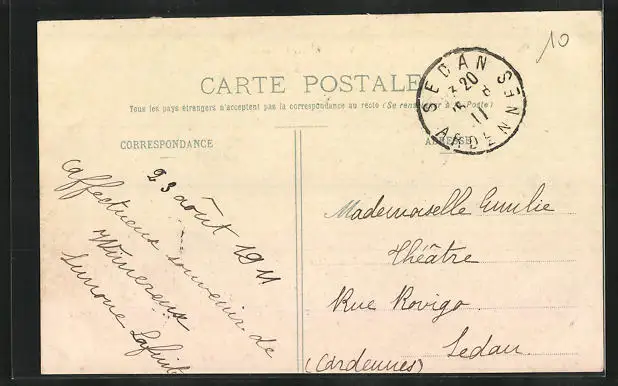 10
CARTE POSTALE
Tous les pays étrangers n'acceptent pas la correspondance au recto (Se renseigner à la Poste)
SEDAN
ARDENNES
3 20
8
11
CORRESPONDANCE
ADRESSE
23 août 1911
affectueux souvenir de
Wimereux
Simone
Mademoiselle Emilie
Théâtre
Rue Rovigo
Sedan.
(Ardennes)